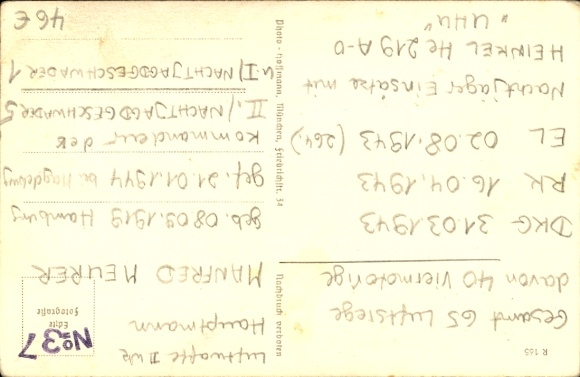 R 165
Gesamt 65 Luftsiege
davon 40 Viermotorige
DKG 31.03.1943
RK 16.04.1943
EL 02.08.1943 (264.)
Nachtjäger Einsätze mit
HEINKEL He 219 A-0
"UHU"
Nachdruck verboten
Photo - Hoffmann, München, Friedrichstr. 34
Luftwaffe II WK
Hauptmann
MANFRED MEURER
geb. 08.09.1919 Hamburg
gef. 21.01.1944 b. Magdeburg
Kommandeur der
II./NACHTJAGDGESCHWADER 5
u I/NACHTJAGDGESCHWADER 1
46 €
No 37
Echte
Fotografie